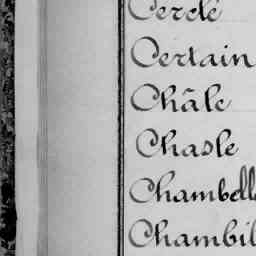 Cerclé
Certain
Châle
Chasle
Chambell
Chambil